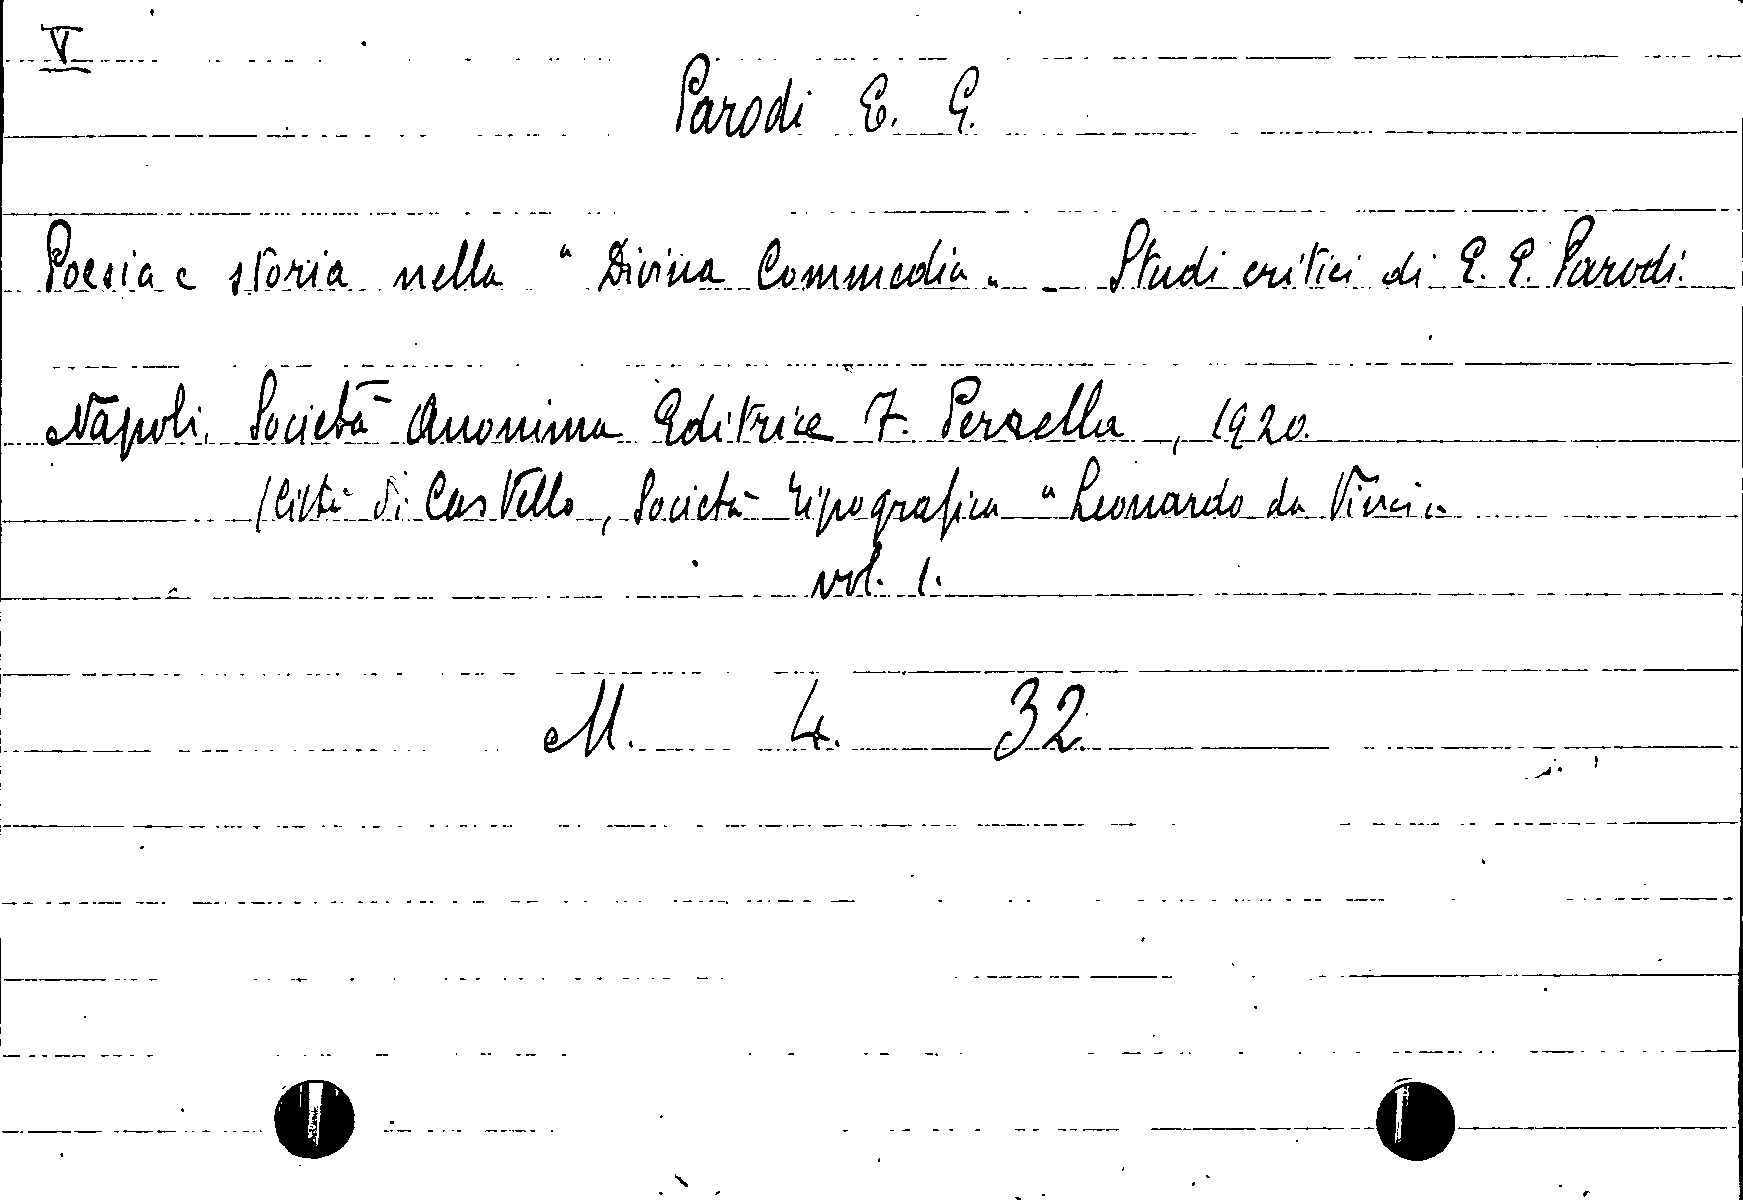 V
Parodi E. G.
Poesia e storia nella "Divina Commedia" - Studi critici di E. G. Parodi.
Napoli, Società Anonima Editrice F. Perrella, 1920.
(Città di Castello, Società Tipografica "Leonardo da Vinci"
vol. 1.
M. 4. 32.